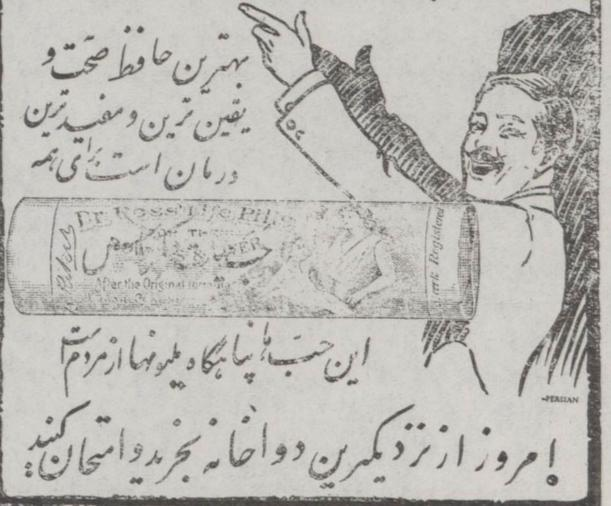 بهترین حافظ صحت و
یقین ترین و مفیدترین
درمان است برای همه
Dr. Ross' Life Pills
LIVER
After the Original formula
Mark Registered
این حب ها پناهگاه ملیونها از مردم است
PERSIAN
امروز از نزدیکترین دواخانه بخرید و امتحان کنید